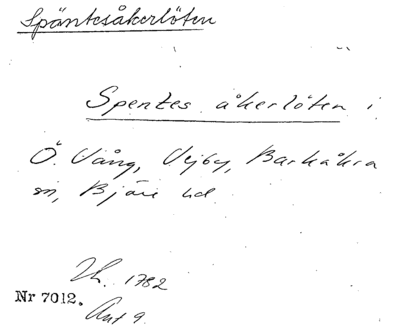 Späntesåkerlöten
Spentes åkerlöten i
Ö. Vång, Vejby, Barkåkra
sn, Bjäre hd.
Lh. 1782
Nr 7012.
Akt 9.